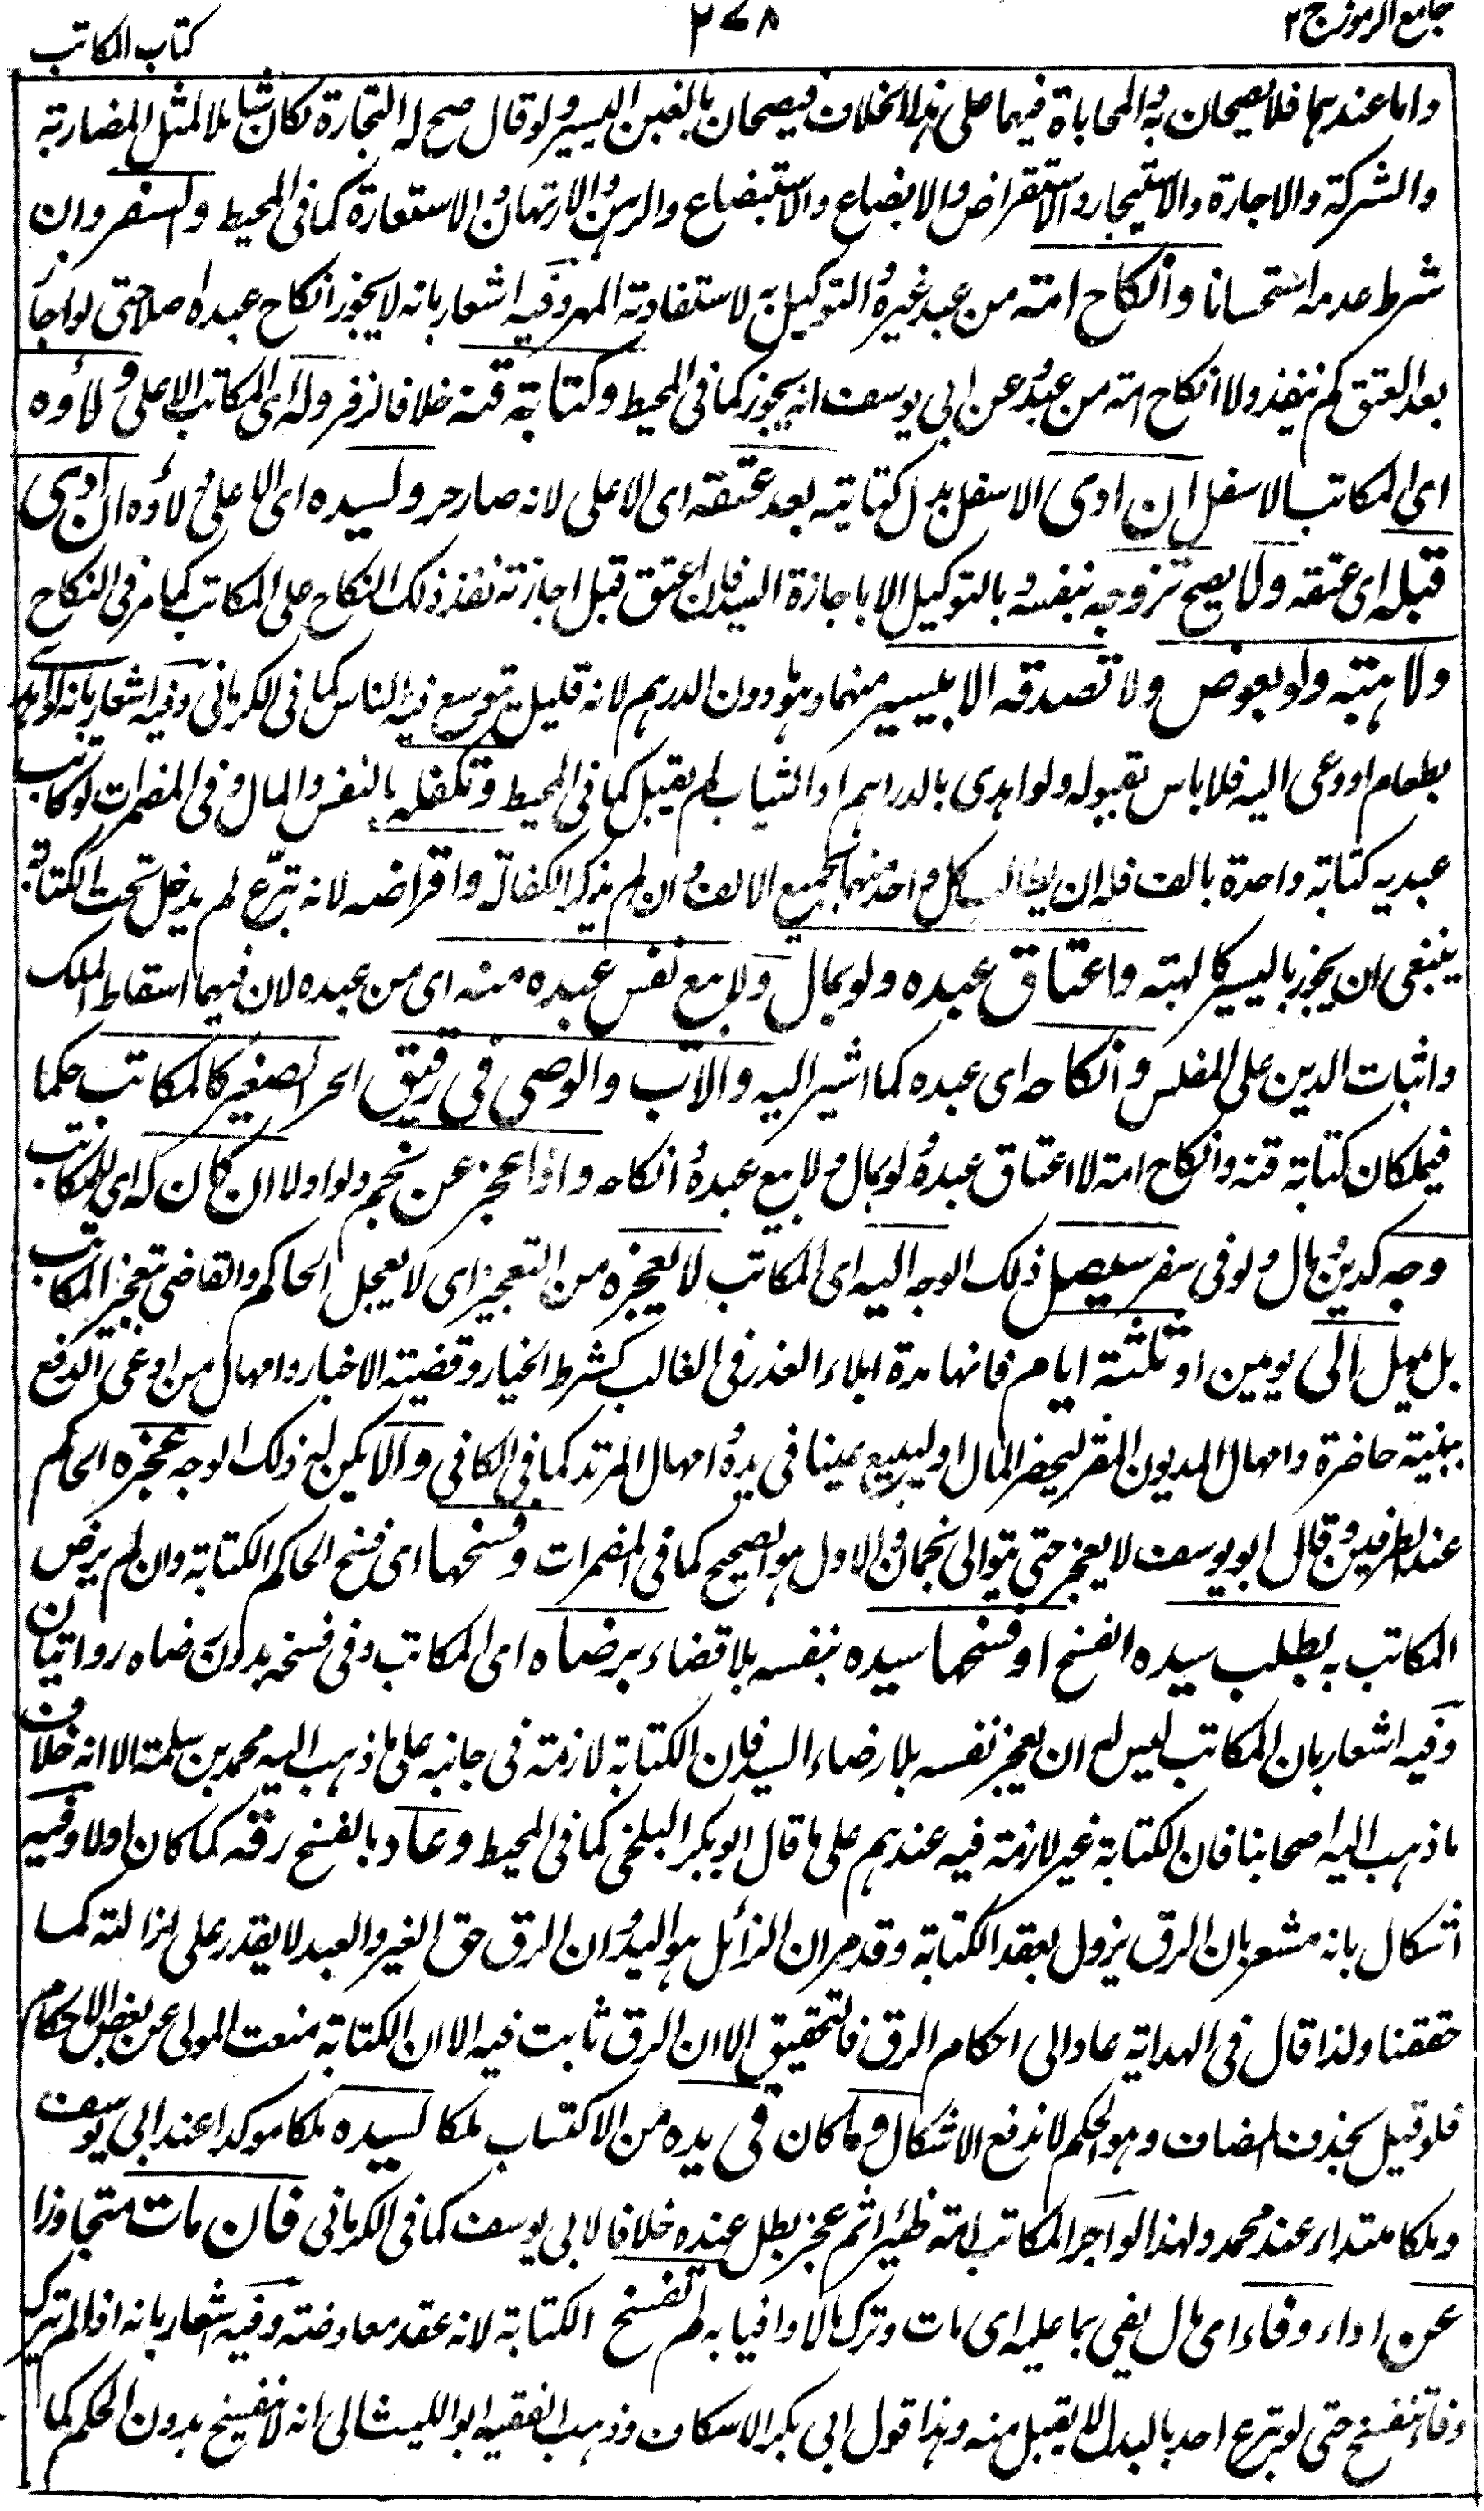 جامع الرموز ج ٢
٢٧٨
كتاب المكاتب
واما عندهما فلا يصحان به والمحاباة فيهما على هذا الخلاف فيصحان بالغبن اليسير ولو قال صح له التجارة لكان شاملا لمثل المضاربة
والشركة والاجارة والاستيجار والاستقراض والابضاع والاستبضاع والرهن والارتهان والاستعارة كما فى المحيط والسفر وان
شرط عدمه استحسانا وانكاح امته من عبد غيره والتوكيل به لاستفادته المهر وفيه اشعار بانه لا يجوز انكاح عبده اصلا حتى لو اجاز
بعد العتق لم ينفذ ولا انكاح امته من عبده وعن ابى يوسف انه يجوز كما فى المحيط وكتابة قنه خلافا لزفر وله اى المكاتب الاعلى ولاؤه
اى المكاتب الاسفل ان ادى الاسفل بدل كتابته بعد عتقه اى الاعلى لانه صار حر ولسيده اى الاعلى ولاؤه ان ادى
قبله اى عتقه ولا يصح تزوجه بنفسه وبالتوكيل الا باجازة السيد فان اعتق قبل اجازته نفذ ذلك النكاح على المكاتب كما مر فى النكاح
ولا هبته ولو بعوض ولا تصدقه الا بيسير منهما وهو دون الدرهم لانه قليل يتوسع فيه الناس كما فى الكرمانى وفيه اشعار بانه لو اهدى
بطعام او دعى اليه فلا باس بقبوله ولو اهدى بالدراهم او الثياب لم يقبل كما فى المحيط وتكفله بالنفس والمال وفى المضمرات لو كاتب
عبديه كتابة واحدة بالف فله ان يطالب كل واحد منهما بجميع الالف وان لم يذكر الكفالة واقراضه لانه تبرع لم يدخل تحت الكتابة
ينبغى ان يجوز باليسير كالهبة واعتاق عبده ولو بمال ولا بيع نفس عبده منه اى من عبده لان فيهما اسقاط الملك
واثبات الدين على المفلس وانكاحه اى عبده كما اشير اليه والاب والوصى فى رقيق الحر الصغير كالمكاتب حكما
فيملكان كتابة قنه وانكاح امته لا اعتاق عبده ولو بمال ولا بيع عبده وانكاحه واذا عجز عن نجم ولو اولا ان كان له اى للمكاتب
وجه كدين ومال ولو فى سفر سيصل ذلك الوجه اليه اى المكاتب لا يعجزه من التعجيز اى لا يعجل الحاكم والقاضى بتعجيز المكاتب
بل يمهل الى يومين او ثلثة ايام فانها مدة ابلاء العذر فى الغالب كشرط الخيار وقضية الاخبار وامهال من ادعى الدفع
ببينة حاضرة وامهال المديون المقر ليحضر المال او ليبيع عينا فى يده وامهال المرتد كما فى الكافى والا يكن له ذلك الوجه عجزه الحاكم
عند الطرفين وقال ابو يوسف لا يعجز حتى يتوالى نجمان والاول هو الصحيح كما فى المضمرات وفسخها اى فسخ الحاكم الكتابة وان لم يرض
المكاتب به بطلب سيده الفسخ او فسخها سيده بنفسه بلا قضاء برضاه اى المكاتب وفى فسخه بدون رضاه روايتان
وفيه اشعار بان المكاتب ليس له ان يعجز نفسه بلا رضاء السيد فان الكتابة لازمة فى جانبه على ما ذهب اليه محمد بن سلمة الا انه خلاف
ما ذهب اليه اصحابنا فان الكتابة غير لازمة فيه عندهم على ما قال ابو بكر البلخى كما فى المحيط وعاد بالفسخ رقه كما كان اولا وفيه
اشكال بانه مشعر بان الرق يزول بعقد الكتابة وقد مر ان الزائل هو اليد وان الرق حق الغير والعبد لا يقدر على ازالته كما
حققنا ولذا قال فى الهداية عاد الى احكام الرق فالتحقيق الا ان الرق ثابت فيه الا ان الكتابة منعت المولى عن بعض الاحكام
فلو قيل بحذف المضاف وهو الحكم لاندفع الاشكال وما كان فى يده من الاكتساب ملكا لسيده ملكا موكدا عند ابى يوسف
وملكا مبتداء عند محمد ولهذا لو اجر المكاتب امته ظئيرا ثم عجز بطل عنده خلافا لابى يوسف كما فى الكرمانى فان مات متجاوزا
عن اداء وفاء اى مال يفى بما عليه اى مات وترك مالا وافيا به لم تفسخ الكتابة لانه عقد معاوضة وفيه اشعار بانه اذا لم يترك
وفاء تنفسخ حتى لو تبرع احد بالبدل لا يقبل منه وهذا قول ابى بكر الاسكاف وذهب الفقيه ابو الليث الى انه لا تنفسخ بدون الحكم كما